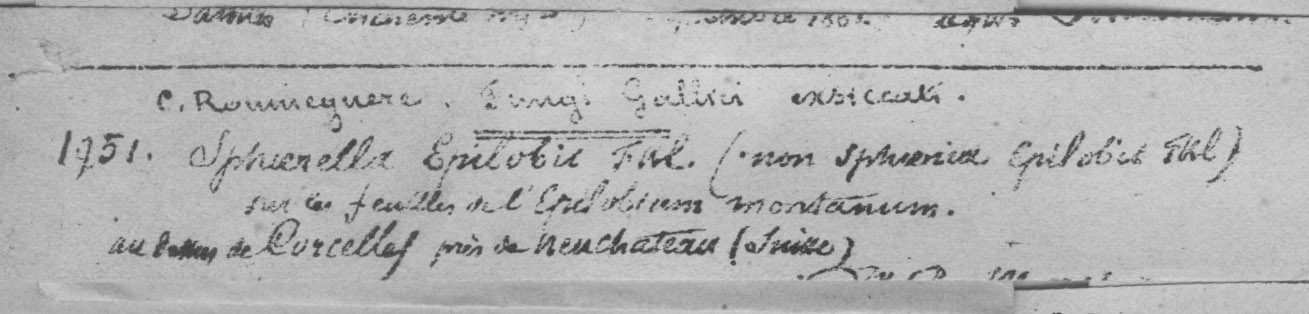 C. Roumeguere. Fungi Gallici exsiccati.
1951. Sphærella Epilobii Fkl. (non Sphæria Epilobii Fkl)
sur les feuilles de l'Epilobium montanum.
au dessus de Corcelles près de neuchateau (Suisse)